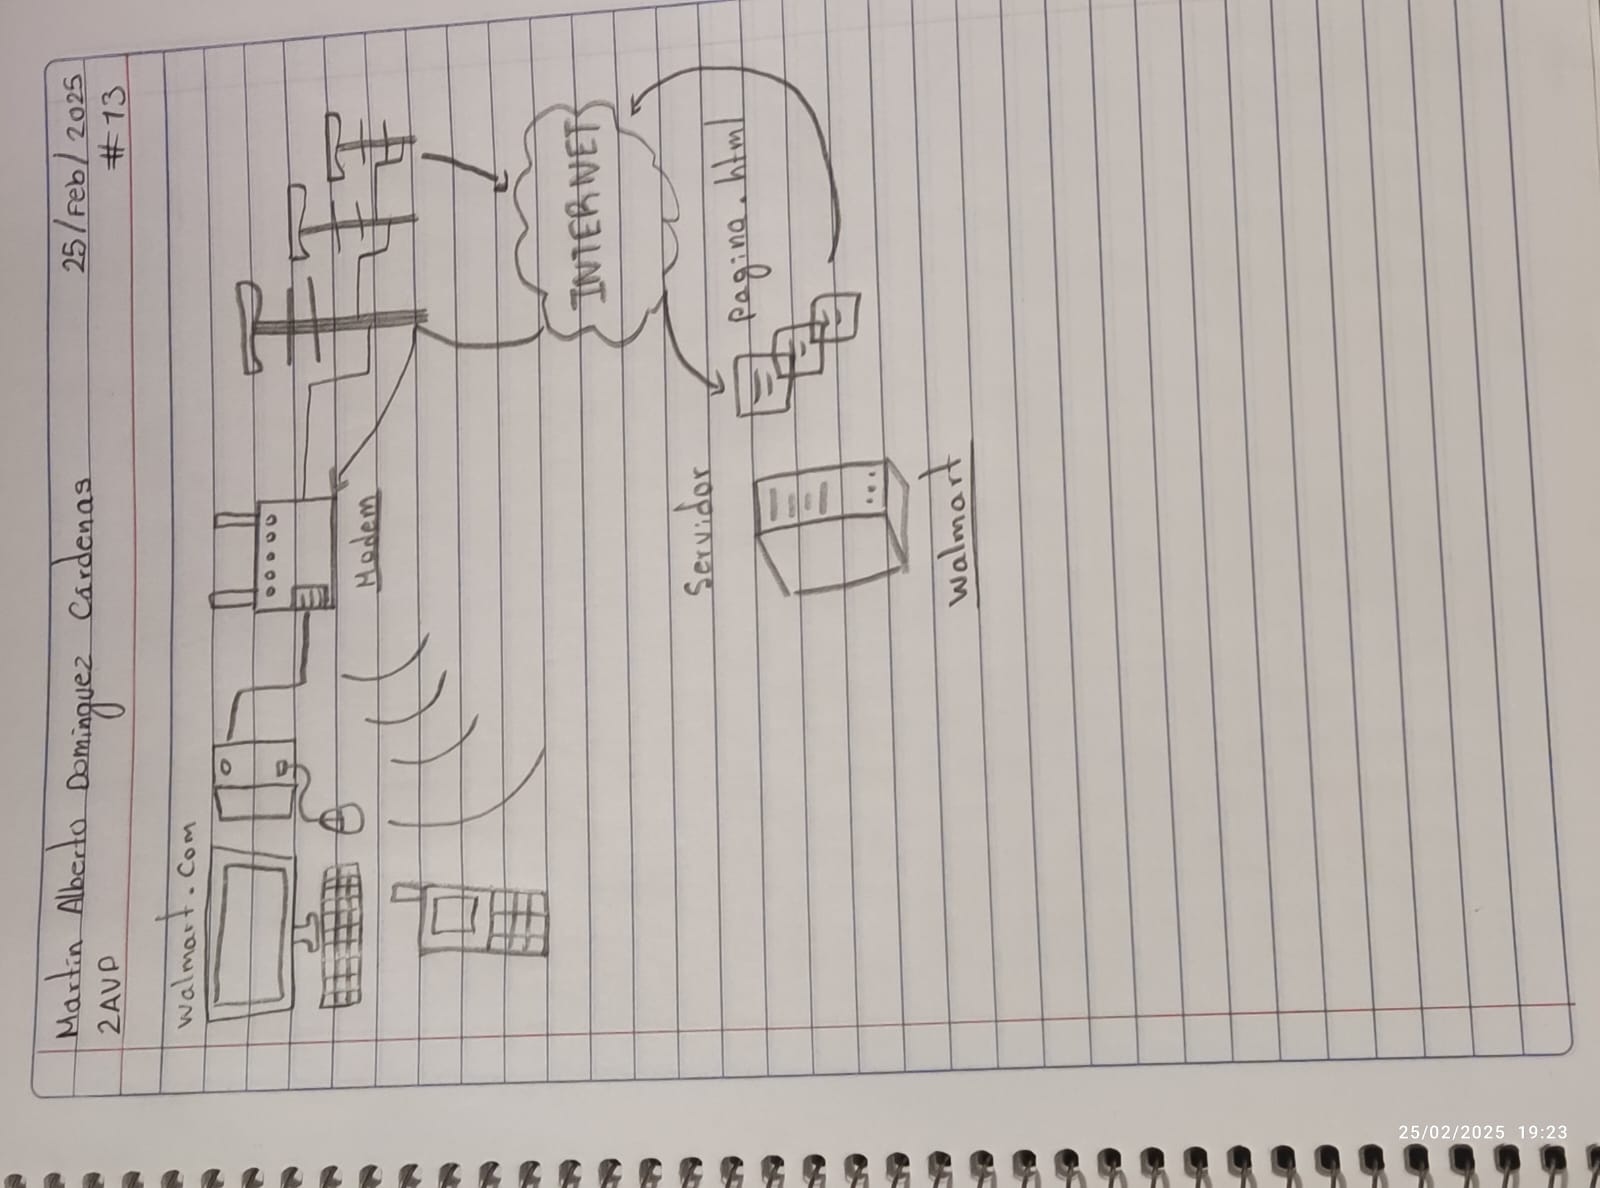 Martin Alberto Dominguez Cárdenas 25/Feb/2025
2AVP #13
walmart.com
Modem
INTERNET
Servidor
Pagina.html
Walmart
25/02/2025 19:23